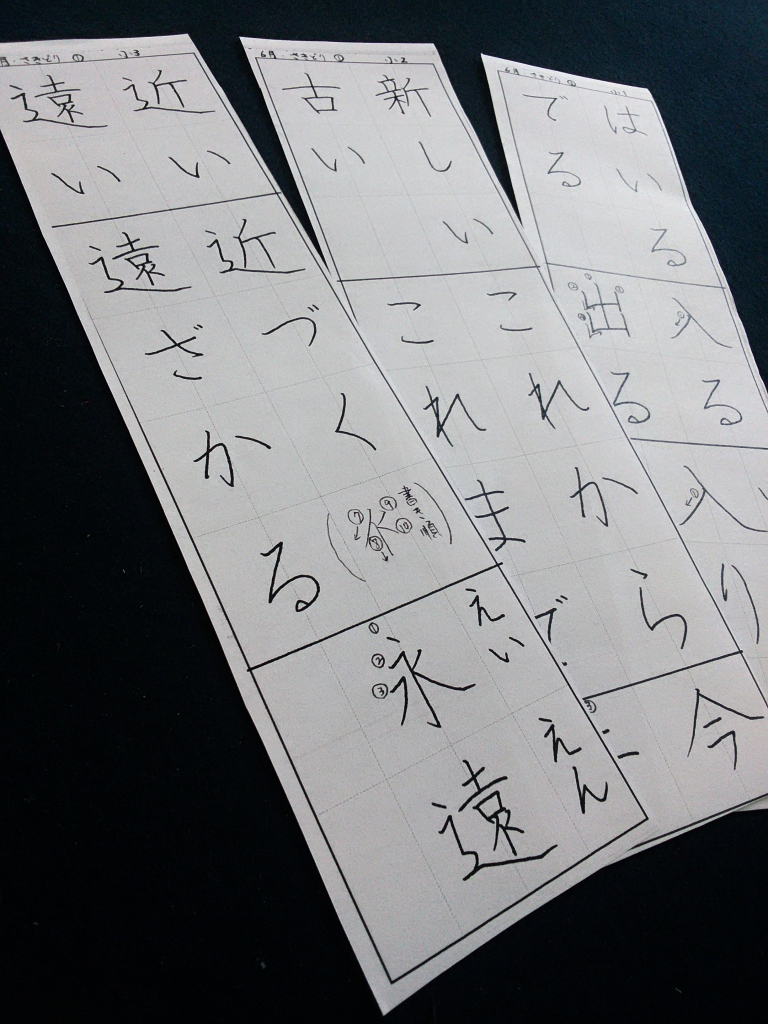 月 さきどり ① 小3
近い
遠い
近づく
遠ざかる
(書き順 ⑦ ⑧ ⑨ ⑩)
えいえん
① ② ③
永遠
6月 さきどり ① 小2
新しい
古い
これから
これまで
今
6月 さきどり ① 小1
はいる
でる
入る
出る
入り